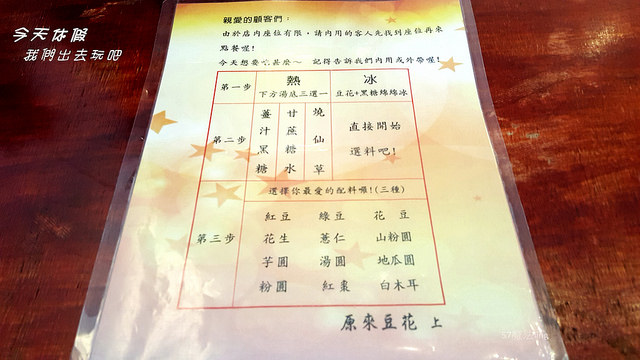 今天休假
我們出去玩吧
親愛的顧客們：
由於店內座位有限，請內用的客人先找到座位再來
點餐喔！
今天想要吃甚麼～ 記得告訴我們內用或外帶喔！
第一步
熱
下方湯底三選一
冰
豆花+黑糖綿綿冰
第二步
薑汁黑糖
甘蔗糖水
燒仙草
直接開始
選料吧！
第三步
選擇你最愛的配料囉！(三種)
紅豆 綠豆 花豆
花生 薏仁 山粉圓
芋圓 湯圓 地瓜圓
粉圓 紅棗 白木耳
原來豆花 上